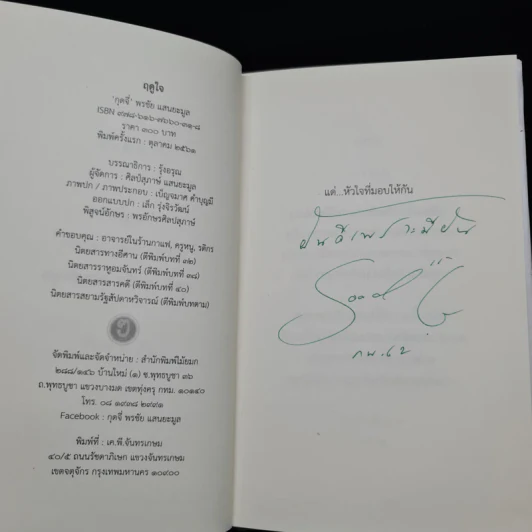 ฤดูใจ
'กุดจี่' พรชัย แสนยะมูล
ISBN ๙๗๘-๖๑๖-๗๖๖๐-๓๑-๘
ราคา ๓๐๐ บาท
พิมพ์ครั้งแรก : ตุลาคม ๒๕๖๑
บรรณาธิการ : รุ้งอรุณ
ผู้จัดการ : ศิลป์สุภาษ์ แสนยะมูล
ภาพปก / ภาพประกอบ : เบ็ญจมาศ คำบุญมี
ออกแบบปก : เล็ก รุ่งจิรวัฒน์
พิสูจน์อักษร : พรอักษรศิลปสุภาษ์
คำขอบคุณ : อาจารย์ในร้านกาแฟ, ครูหนู, รติกร
นิตยสารทางอีศาน (ตีพิมพ์บทที่ ๓๒)
นิตยสารราหูอมจันทร์ (ตีพิมพ์บทที่ ๓๘)
นิตยสารสารคดี (ตีพิมพ์บทที่ ๔๐)
นิตยสารสยามรัฐสัปดาหวิจารณ์ (ตีพิมพ์บทตาม)
จัดพิมพ์และจัดจำหน่าย : สำนักพิมพ์ไม้ยมก
๒๘๘/๑๔๖ บ้านใหม่ (๑) ซ.พุทธบูชา ๓๖
ถ.พุทธบูชา แขวงบางมด เขตทุ่งครุ กทม. ๑๐๑๔๐
โทร. ๐๘ ๑๙๓๘ ๒๙๙๑
Facebook : กุดจี่ พรชัย แสนยะมูล
พิมพ์ที่ : เค.พี.จันทรเกษม
๔๐/๕ ถนนรัชดาภิเษก แขวงจันทรเกษม
เขตจตุจักร กรุงเทพมหานคร ๑๐๙๐๐
แด่...หัวใจที่มอบให้กัน
ฝันดีเพราะมีฝัน
กพ.๖๒